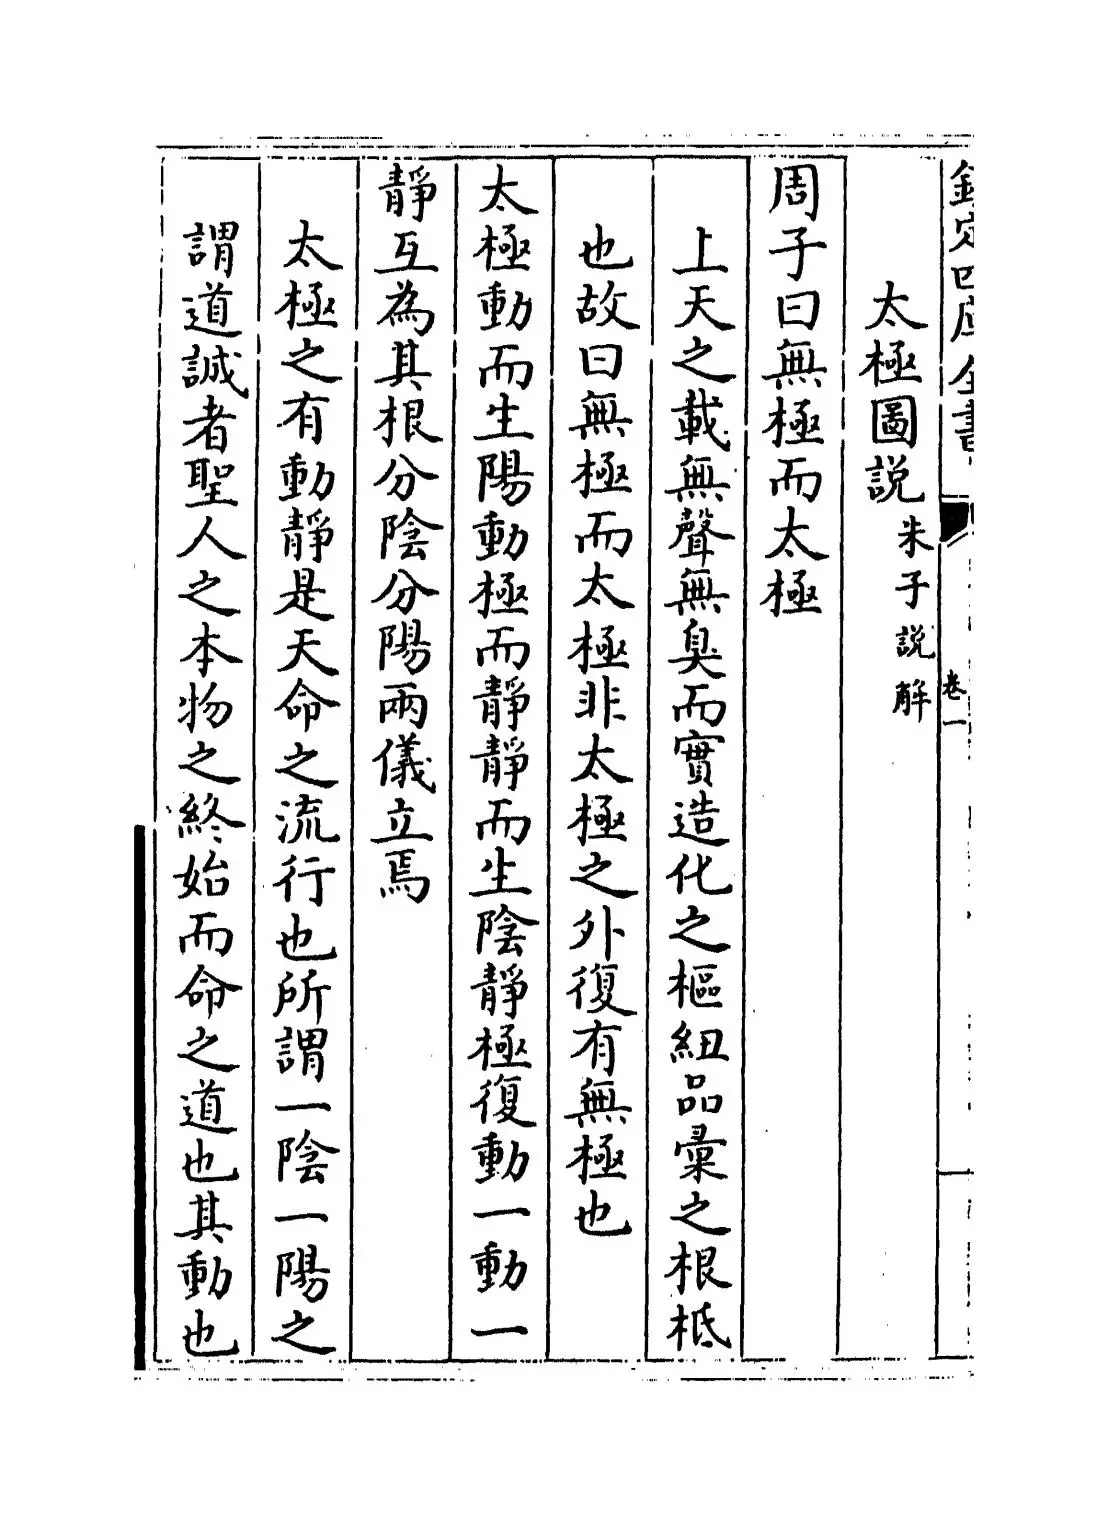 欽定四庫全書
卷一
太極圖説朱子説解
周子曰無極而太極
上天之載無聲無臭而實造化之樞紐品彚之根柢
也故曰無極而太極非太極之外復有無極也
太極動而生陽動極而靜靜而生陰靜極復動一動一
靜互為其根分陰分陽兩儀立焉
太極之有動靜是天命之流行也所謂一陰一陽之
謂道誠者聖人之本物之終始而命之道也其動也